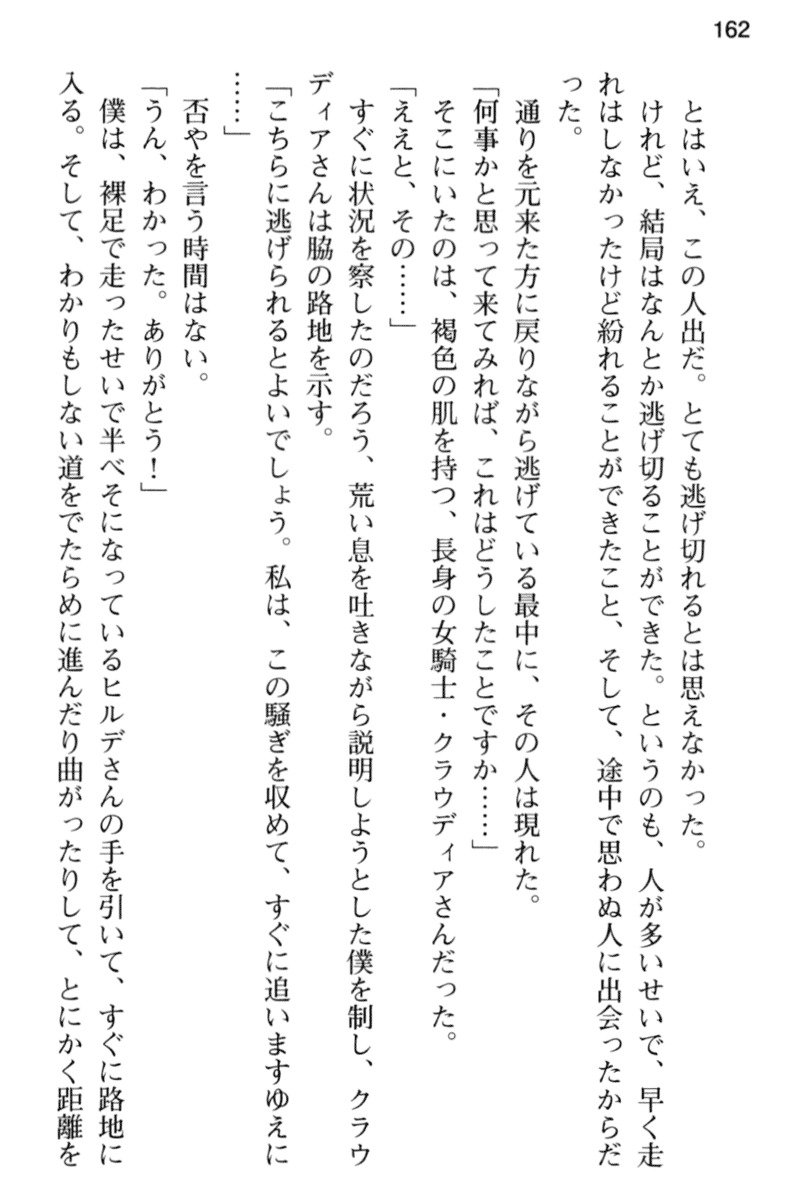 162
　とはいえ、この人出だ。とても逃げ切れるとは思えなかった。
　けれど、結局はなんとか逃げ切ることができた。というのも、人が多いせいで、早く走
れはしなかったけど紛れることができたこと、そして、途中で思わぬ人に出会ったからだ
った。
　通りを元来た方に戻りながら逃げている最中に、その人は現れた。
「何事かと思って来てみれば、これはどうしたことですか……」
　そこにいたのは、褐色の肌を持つ、長身の女騎士・クラウディアさんだった。
「ええと、その……」
　すぐに状況を察したのだろう、荒い息を吐きながら説明しようとした僕を制し、クラウ
ディアさんは脇の路地を示す。
「こちらに逃げられるとよいでしょう。私は、この騒ぎを収めて、すぐに追いますゆえに
……」
　否やを言う時間はない。
「うん、わかった。ありがとう！」
　僕は、裸足で走ったせいで半べそになっているヒルデさんの手を引いて、すぐに路地に
入る。そして、わかりもしない道をでたらめに進んだり曲がったりして、とにかく距離を